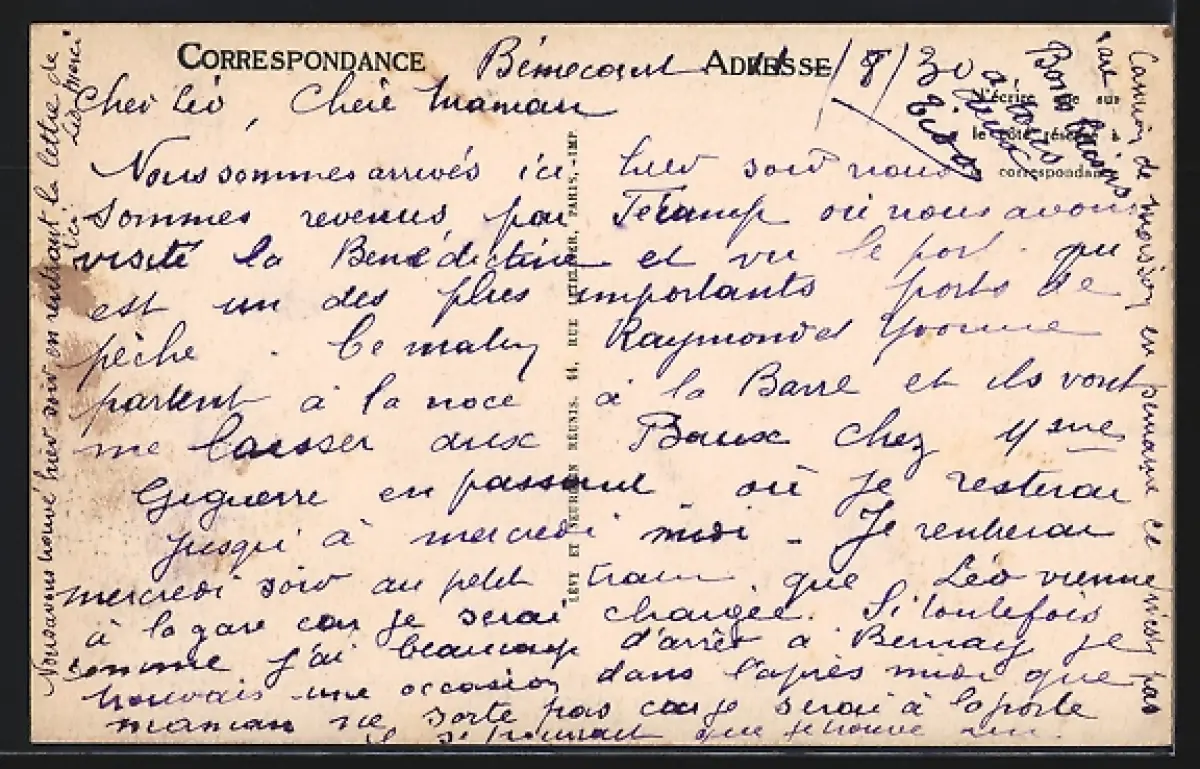 CORRESPONDANCE
ADRESSE
Bémecourt 11/8/30
Cher Léo, Chère Maman
Nous sommes arrivés ici hier soir nous
sommes revenus par Fécamp où nous avons
visité la Bénédictine et vu le port qui
est un des plus importants ports de
pêche. Ce matin Raymond et Yvonne
partent à la noce à la Barre et ils vont
me laisser aux Baux chez Mme
en passant où je resterai
jusqu'à mercredi midi - Je rentrerai
mercredi soir au petit train que Léo vienne
à la gare car je serai chargée. Si toutefois
comme j'ai beaucoup d'arrêt à Bernay je
trouvais une occasion dans l'après midi que
maman ne sorte pas car je serai à la porte
que je trouve
Nous avons trouvé hier soir en rentrant la lettre de
Léo merci
Bons baisers
à tous
deux
N'écrire que sur
le côté réservé à
correspondance
en semaine ce n'est pas
LÉVY ET NEURDEIN RÉUNIS. 44, RUE LETELLIER, PARIS, -IMP.